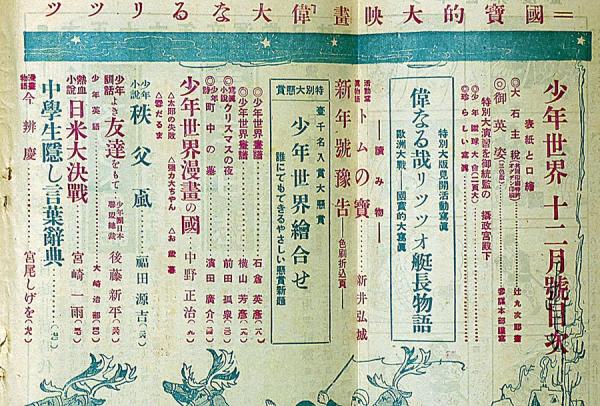 國寶的大映畫「偉大なるリツツ
少年世界 十二月號目次
表紙と口繪
◎大石主稅
辻九次郎畫
◎御英姿
參謀本部謹寫
特別大演習を御統監の 攝政宮殿下
◎少年籠球大會
◎珍らしい寫眞
特別大版見開活動寫眞
偉なる哉リツツオ艇長物語
歐洲大戰――國寶的大寫眞
――讀み物――
トムの寶
新井弘城
新年號豫告
色刷折込頁
特別大懸賞
壹千名入賞大懸賞
少年世界繪合せ
誰にでもできるやさしい懸賞新題
◎少年世界畫譜
石倉英彥
◎少年世界畫譜
橫山芳彥
寫眞小說 クリスマスの夜
前田孤泉
町中の墓
濱田廣介
少年世界漫畫の國
中野正治
△太郎の失敗
△強力大ちやん
△お歲暮
△雪だるま
少年小說 秩父颪
福田源吉
少年訓話 よき友達をもて
少年團日本聯盟總裁 後藤新平
少年英語
大崎治郞
熱血小說 日米大決戰
宮崎一雨
中學生隱し言葉辭典
漫畫物語 今辨慶
宮尾しげを